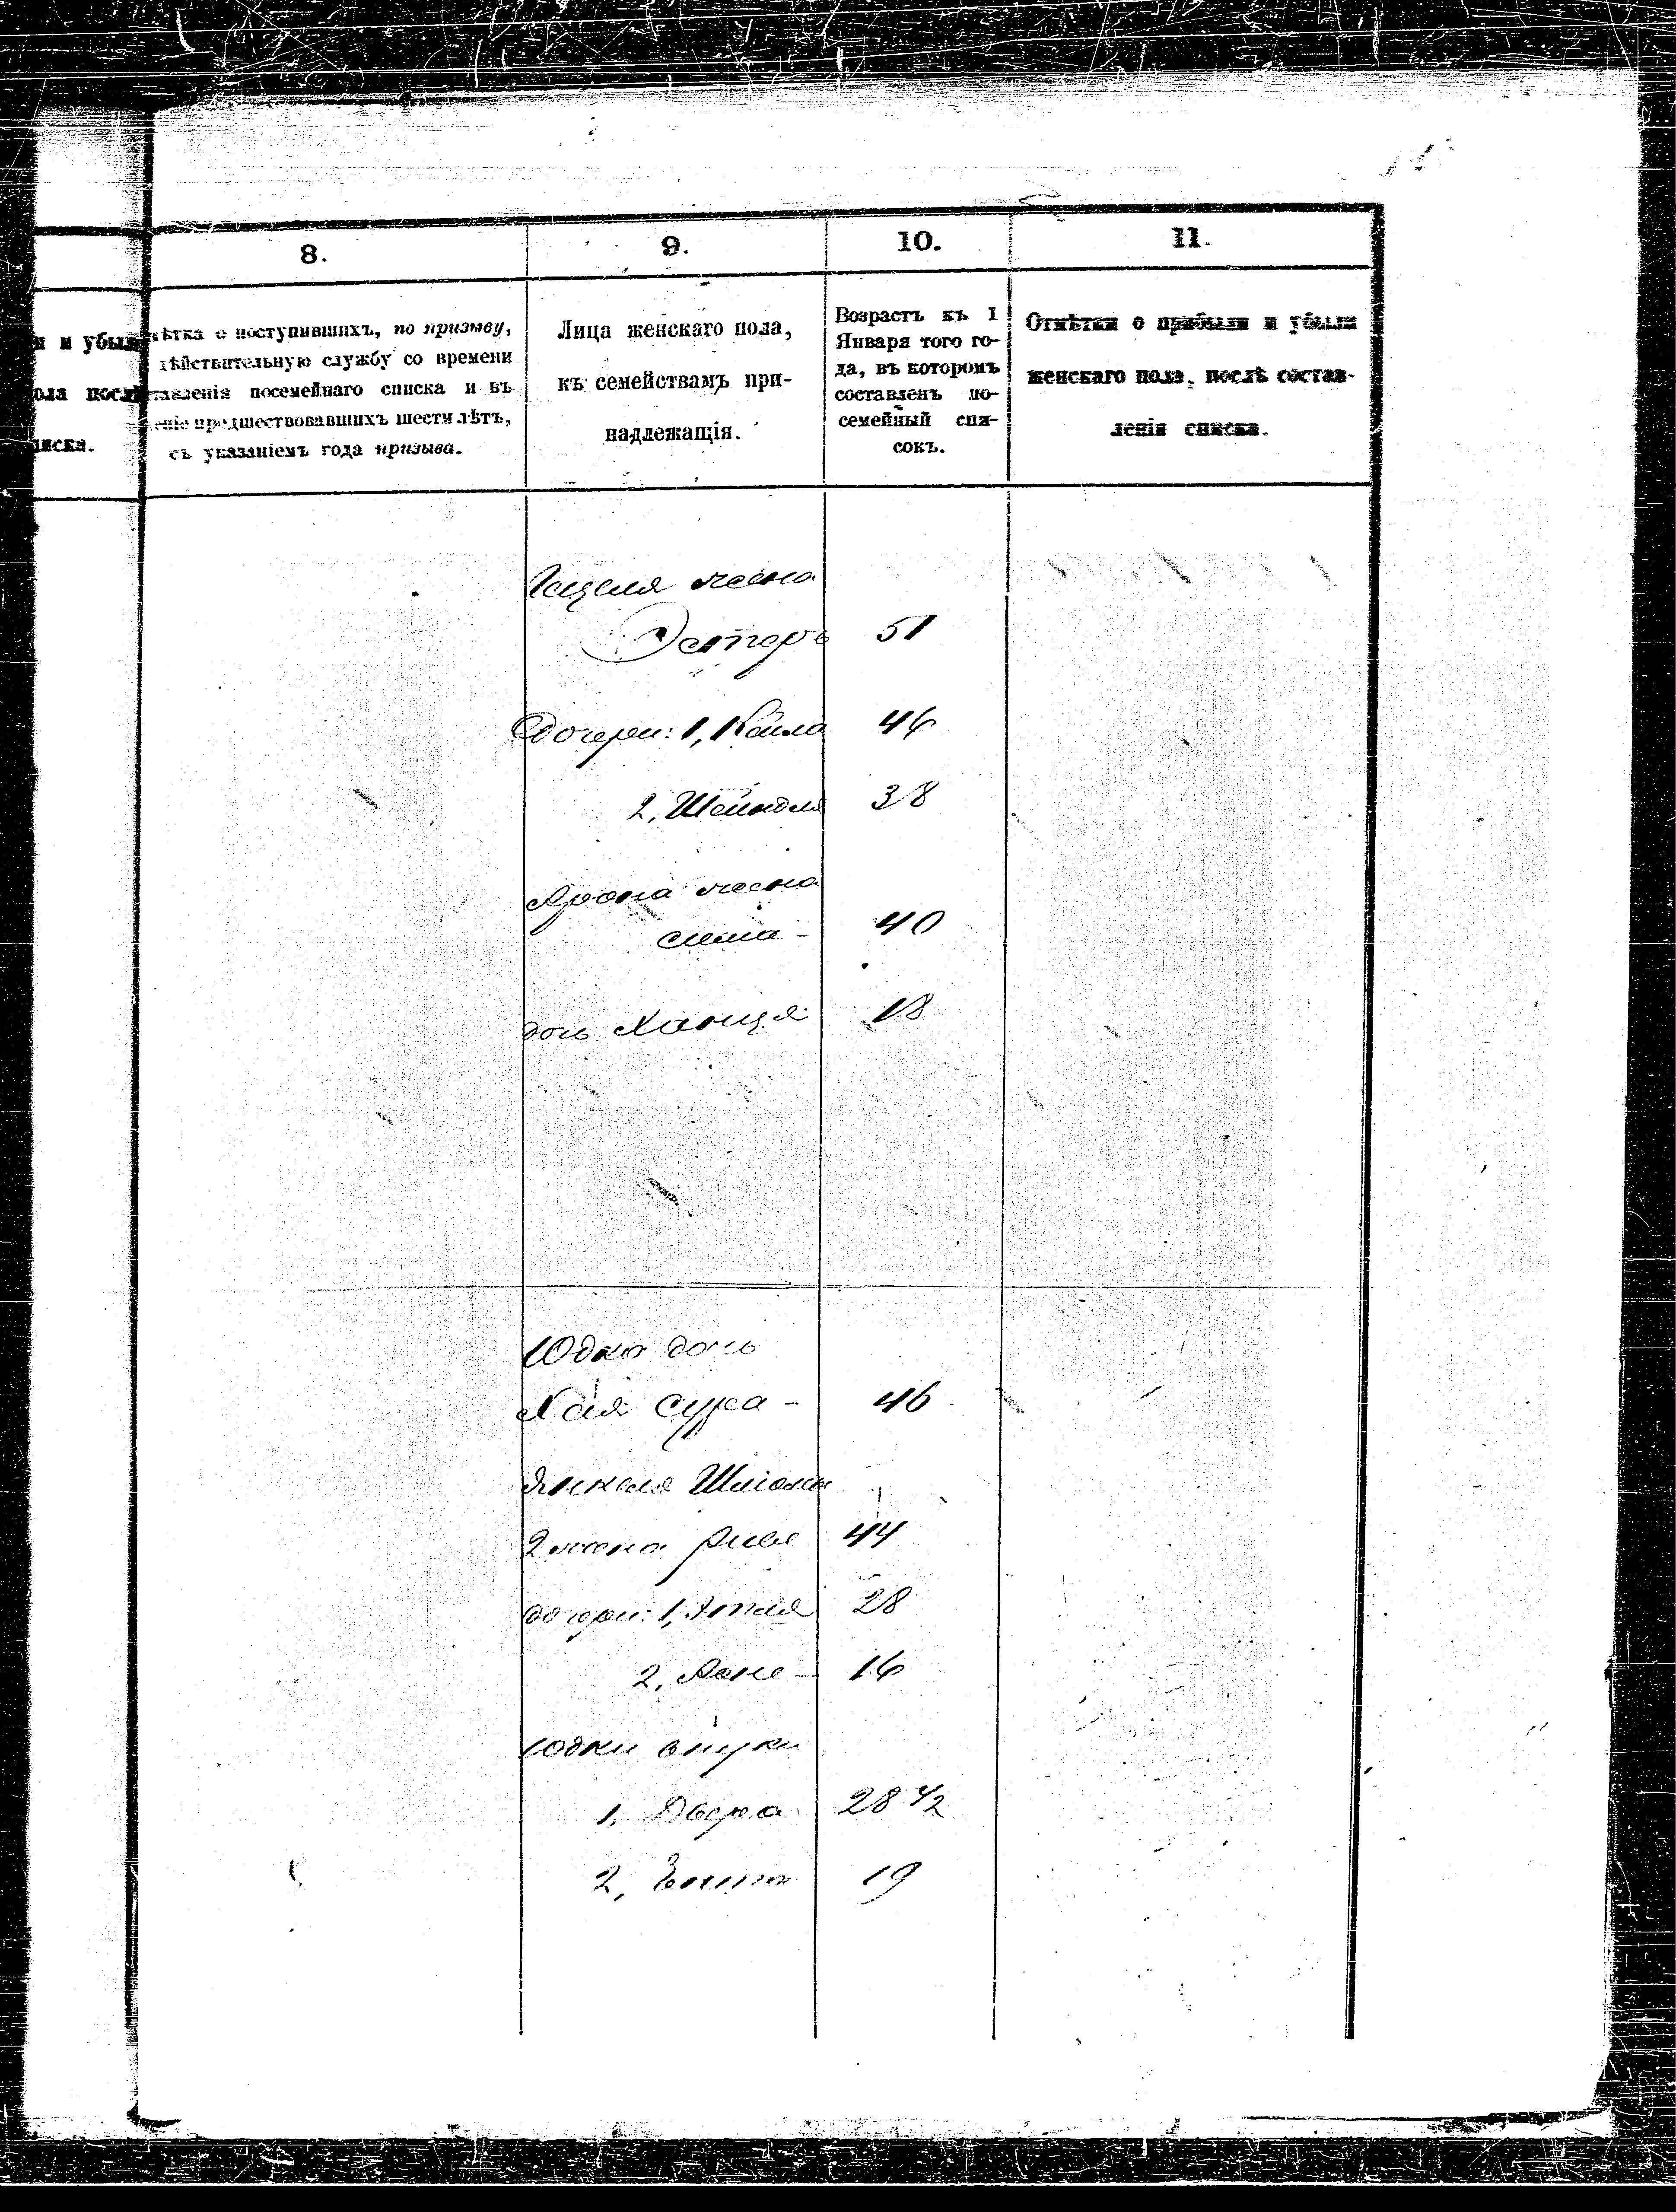 8.
9.
10.
11.
и убыли
ола послѣ
писка.
ѣтка о поступившихъ, по призыву,
дѣйствительную службу со времени
тавленія посемейнаго списка и въ
еніе предшествовавшихъ шести лѣтъ,
съ указаніемъ года призыва.
Лица женскаго пола,
къ семействамъ при-
надлежащія.
Возрастъ къ 1
Января того го-
да, въ которомъ
составленъ по-
семейный спи-
сокъ.
Отмѣтки о прибыли и убыли
женскаго пола, послѣ состав-
ленія списка.
жена
Эстеръ 51
дочери: 1, Кейла 46
2, Шейндля 38
Арона жена
40
дочь Ханця 18
Юдка дочь
Хая Сура - 46
Янкеля
2 жена Рива 44
дочери: 1, Этля 28
2, 16
Юдки внуки
1, Двера 28 1/2
2, 19